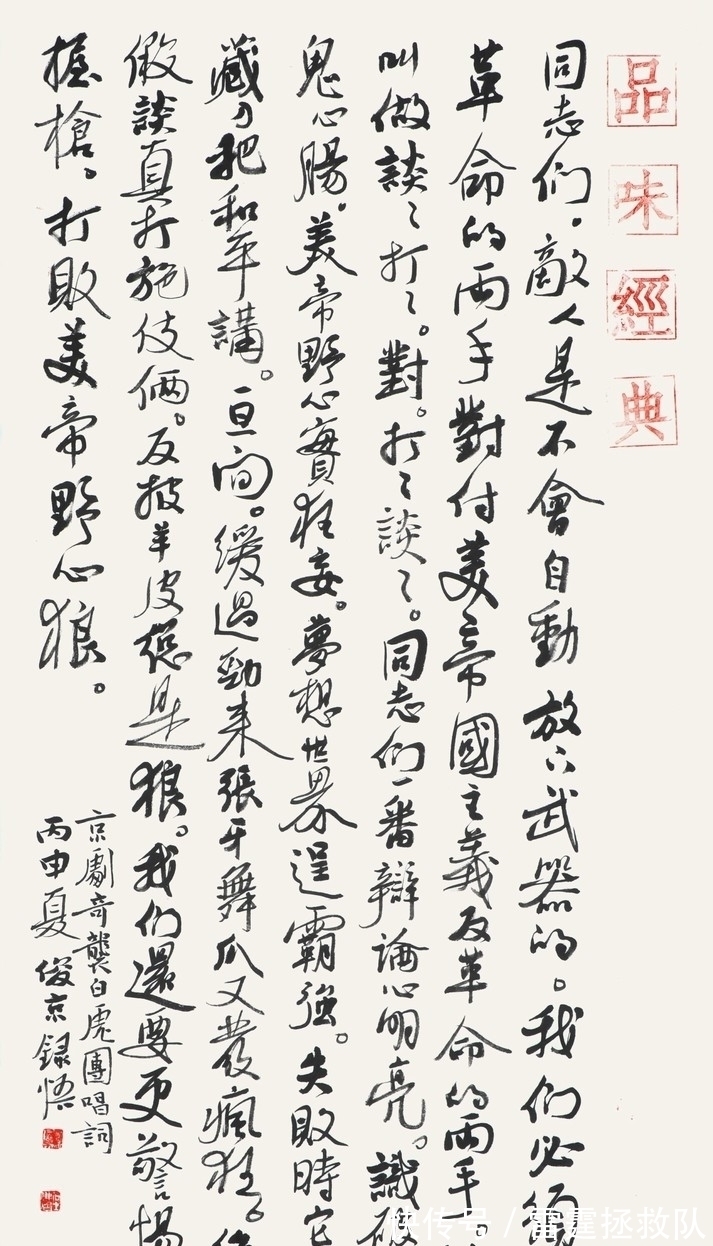 品味經典
同志们。敵人是不會自動放下武器的。我们必须
革命的兩手對付美帝國主義反革命的兩手。
叫做談〻打〻。對。打〻談〻。同志们一番辯論心明亮。識破
鬼心腸。美帝野心實狂妄。夢想世界逞霸強。失敗時它
藏刀把和平講。一旦间。缓過勁来張牙舞爪又發瘋狂。
假談真打施伎俩。反披羊皮總是狼。我们還要更警惕
握槍。打敗美帝野心狼。
京劇奇襲白虎團唱詞
丙申夏 俊京録悟
快传号／雷霆拯救队